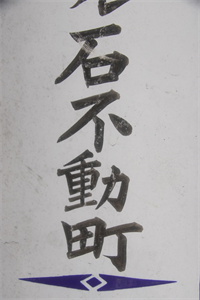 石不動町